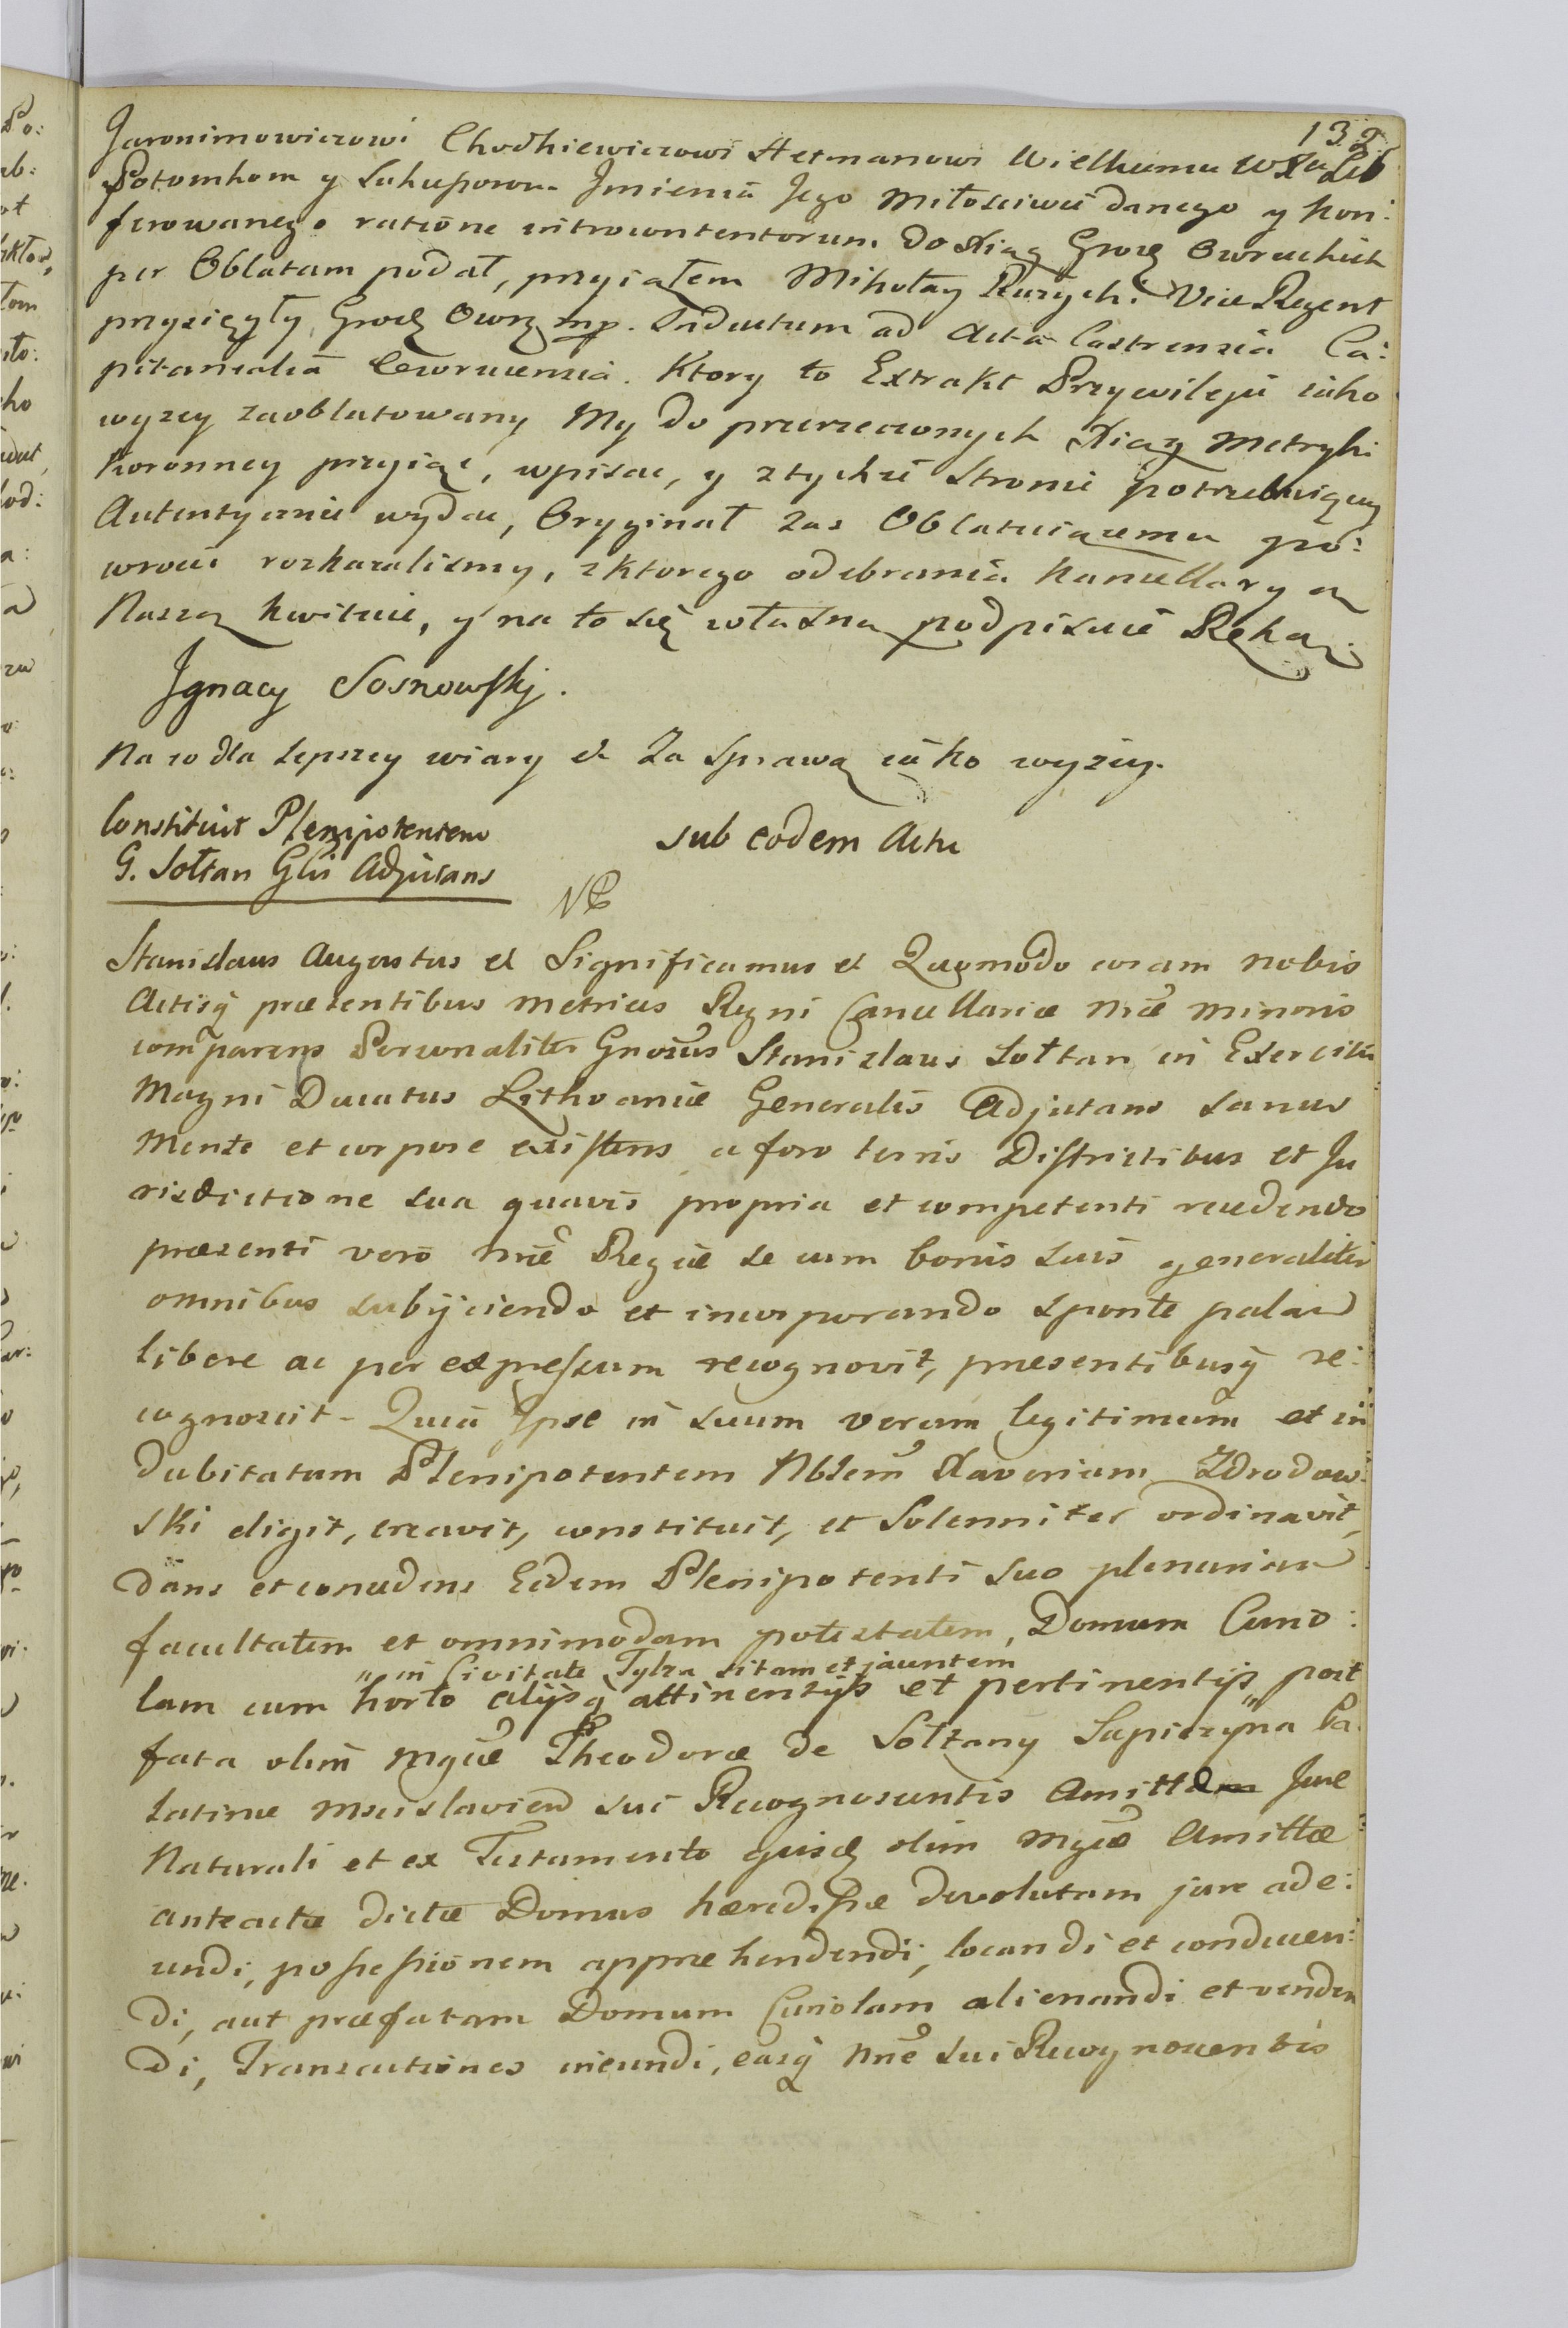 132.
Jaronimowiczowi Chodkiewiczowi Hetmanowi Wielkiemu WXa Lit
Potomkom y Sukcessorom Jmieniu Jego Miłosciwie danego y kon:
ferowanego ratione introcontentorum do Xiąg Grodz Owruckich
per Oblatam podał, przyiąłem Mikołay Kurzych: Vice Regent
przysięgły Grodz Owrz mp. Inductum ad Acta Castrensia Ca:
pitanealia Owrucensia. Ktory to Extrakt Przywileju iako
wyzey zaoblatowany My do przerzeczonych Xiąg Metryki
Koronney przyiąć, wpisac, y z tychze Stronie potrzebuiącey
Autentycznie wydac, Oryginał zas Oblatuiącemu po:
wrocic rozkazalismy, z ktorego odebrania Kancellaryą
Naszą kwituie, y na to się własną podpisuie Ręką.
Jgnacy Sosnowskj.
Na co dla lepszey wiary & Za Sprawą iako wyzey.
Constituit Plenipotentem
G. Sołtan Glis Adjutans
sub eodem Actu
Stanislaus Augustus & Significamus & Quomodo coram nobis
Actisq praesentibus Metrices Regni Cancellariae Nrae minoris
comparens Personaliter Gnosus Stanislaus Sołtan in Exercitu
Magni Ducatus Lithvaniae Generalis Adjutans sanus
Mente et corpore existens a foro terris Districtibus et Ju
risdictione sua quavis propria et competenti recedendo
praesenti vero Nrae Regiae se cum bonis suis generaliter
omnibus subijciendo et incorporando sponte palam
libere ac per expressum recognovit, praesentibusq re:
cognoscit. Quia Jpse in suum verum legitimum et in
dubitatum Plenipotentem Nblem Xaverium Zdrodow:
ski eligit, creavit, constituit, et Solenniter ordinavit,
dans et concedens Eidem Plenipotenti suo plenariam
facultatem et omnimodam potestatem, Domum Curio:
" in Civitate Tylza sitam et jacentem
lam cum horto alijsq attinentijs et pertinentijs" post
fata olim Mgcae Theodorae de Sołtany Sapiezyna Pa
latinae Mscislavien sui Recognoscentis Amittae Jure
Naturali et ex Testamento ejusd olim Mgcae Amittae
anteactae dictae Domus haeredissae devolutam jure ade:
undi, possessionem apprehendendi, locandi et conducen:
di, aut praefatam Domum Curiolam alienandi et venden
di, Transactiones ineundi, easq Nne sui Recognoscentis